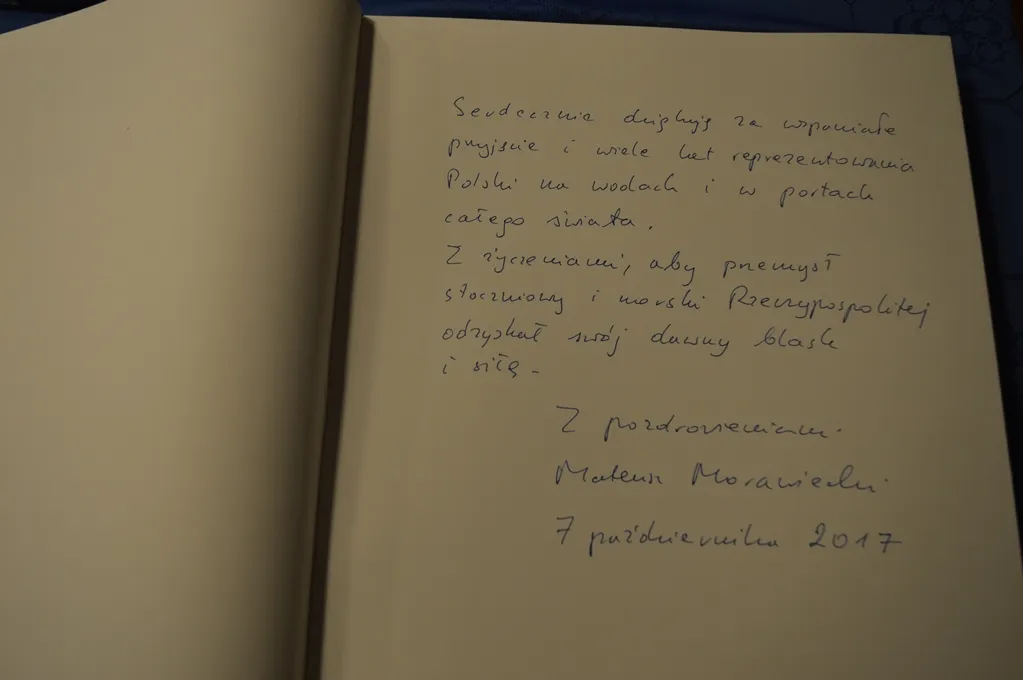 Serdecznie dziękuję za wspaniałe
przyjęcie i wiele lat reprezentowania
Polski na wodach i w portach
całego świata.
Z życzeniami, aby przemysł
stoczniowy i morski Rzeczypospolitej
odzyskał swój dawny blask
i siłę -
Z pozdrowieniami
Mateusz Morawiecki
7 października 2017